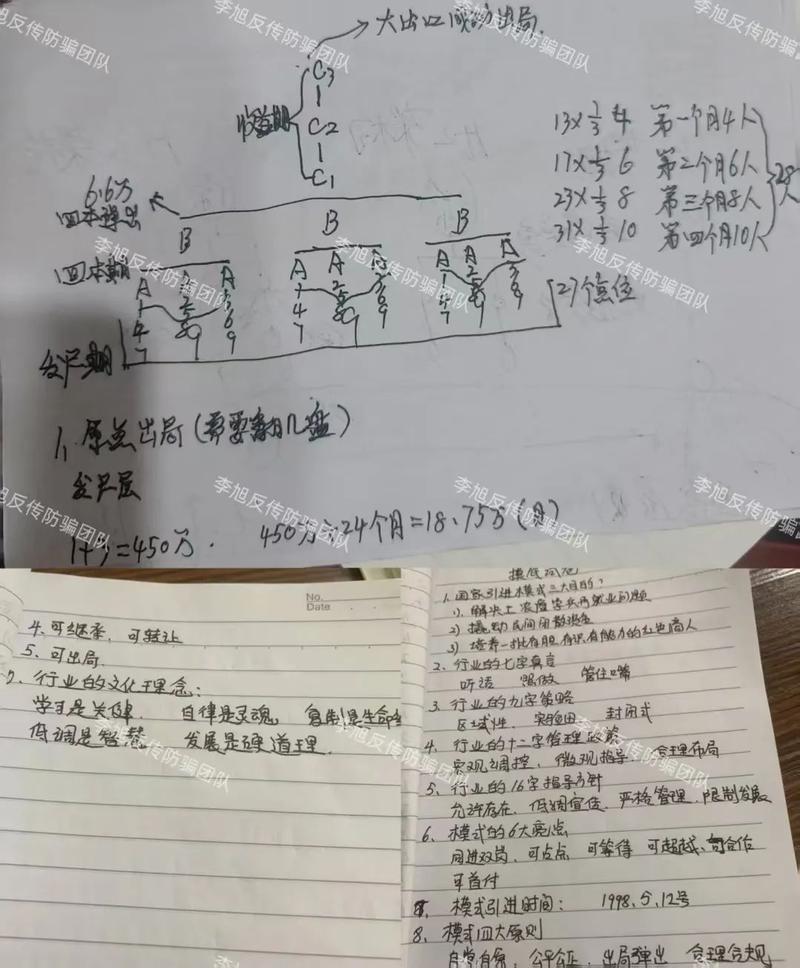 →大出口 成功出局.
C3
收益期 C2
C1
13×1/3 4 第一个月4人
17×1/3 6 第二个月6人
23×1/3 8 第三个月8人
31×1/3 10 第四个月10人
28人
6.6万
回本弹出
B B B
回本期 A A A A A A
1 2 3 1 2 3 1 2 3
4 5 6 4 5 6 4 5 6
7 8 9 7 8 9 7 8 9
27个点位
发展期
1、原点出局(需要翻几盘)
发展层
1+3=450万. 450万÷24个月=18.75万(月)
No.
Date
4.可继承,可转让
5、可出局
7、行业的文化理念:
学习是关键. 自律是灵魂, 复制是生命
低调是智慧, 发展是硬道理.
摸底
1.国家引进模式三大目的?
1).解决
就业问题
2)撬动民间闲散资金
3)培养一批有胆有识有能力的红色商人
2、行业的七字真言
听话 照做 管住嘴
3、行业的九字策略
区域性. 实验田 封闭式
4、行业的十二字管理政策
宏观调控, 微观指导, 合理布局
5、行业的16字指导方针
允许存在、低调宣传、严格管理、限制发展
6、模式的6大亮点
可点点 可等待 可超越、可合作
可首付
7、模式引进时间: 1998、5、12号
8、模式四大原则
自觉自愿、公平公正、出局弹出 合理合规
李旭反传防骗团队